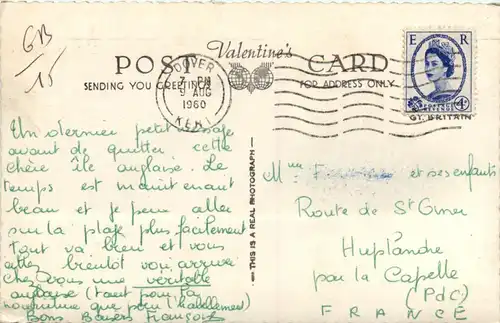 GB
15
POST Valentine's CARD
SENDING YOU GREETINGS
FOR ADDRESS ONLY
DOVER
7 PM
9 AUG
1960
KENT
E R
POSTAGE
GT. BRITAIN
THIS IS A REAL PHOTOGRAPH
Un dernier petit message
avant de quitter cette
chère île anglaise. Le
temps est maintenant
beau et je peux aller
sur la plage plus facilement
tout va bien et vous
allez bientôt voir arriver
chez vous une véritable
anglaise (tant pour la
nourriture que pour l'habillement)
Bons Baisers François
Mme et ses enfants
Route de St Omer
Huplandre
par la Capelle
(PdC)
FRANCE